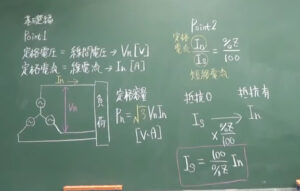 基礎知識
Point1
定格電圧 = 線間電圧 → Vn[V]
定格電流 = 線電流 → In[A]
In →
Vn
負荷
定格容量
Pn = √3 VnIn
[V・A]
Point2
定格電流 In / Is = %Z / 100
短絡電流
抵抗0 抵抗有
Is → In
× %Z / 100
Is = 100 / %Z In